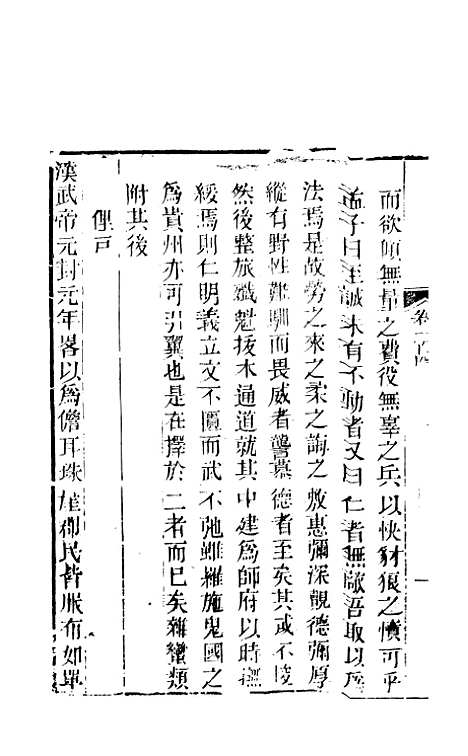 卷一百四
而欲傾無量之費役無辜之兵以快豺狼之憤可乎
孟子曰至誠未有不動者又曰仁者無敵吾取以爲
法焉是故勞之來之柔之誨之敷惠彌深觀德彌厚
縱有野性難馴而畏威者讋慕德者至矣其或不悛
然後整旅殲魁拔木通道就其中建爲師府以時
綏焉則仁明義立文不慝而武不弛雖羅施鬼國之
爲貴州亦可引翼也是在擇於二者而已矣雜蠻類
附其後
俚戸
漢武帝元封元年畧以爲儋耳珠崖郡民皆服布如單